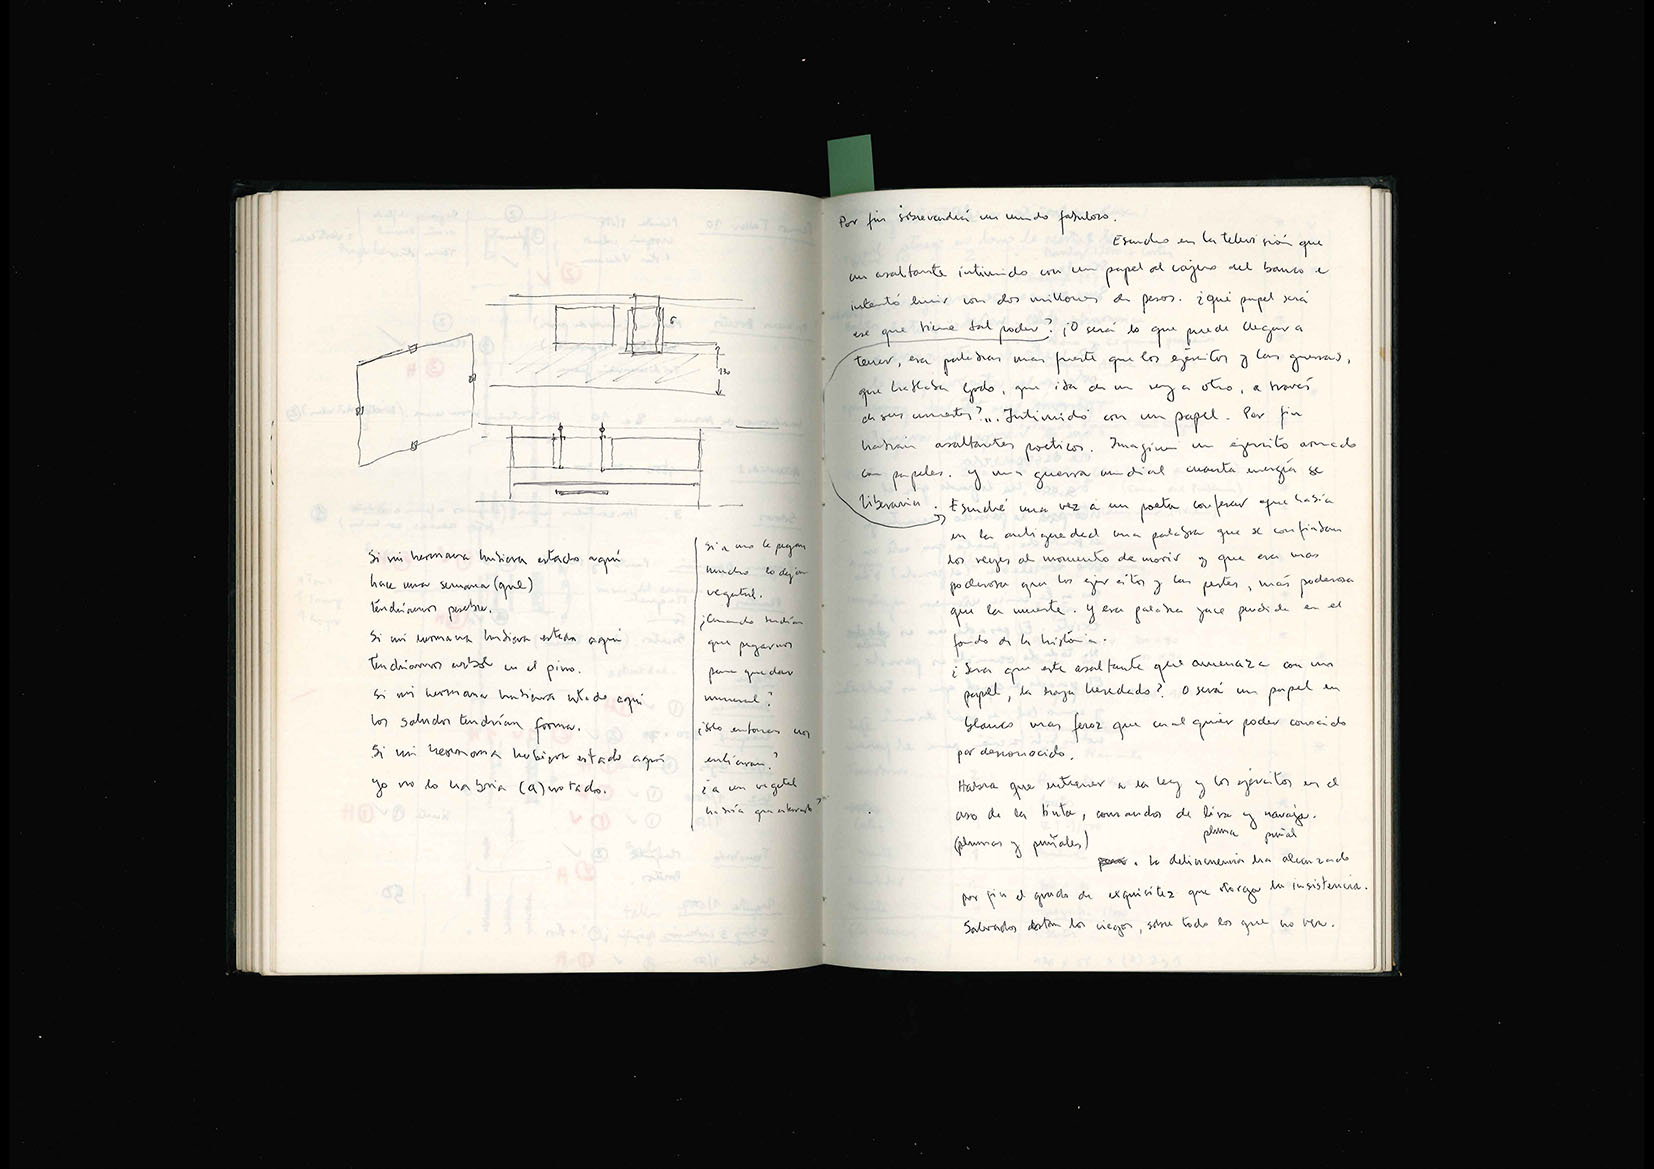 Si mi hermana hubiera estado aquí
hace una semana (qué)
tendríamos postre.
Si mi hermana hubiera estado aquí
tendríamos en el pino.
Si mi hermana hubiera estado aquí
los saludos tendrían forma.
Si mi hermana hubiera estado aquí
yo no lo habría (a)notado.
Si a uno le pegan
mucho lo dejan
vegetal.
¿Cuando
que pegarnos
para quedar
mineral?
¿Solo entonces nos
?
¿a un vegetal
habría que
Por fin un mundo fabuloso.
Escucho en la televisión que
un asaltante intimidó con un papel al cajero del banco e
intentó huir con dos millones de pesos. ¿qué papel será
ese que tiene tal poder? ¿O será lo que puede llegar a
tener, esa palabra más fuerte que los ejércitos y las guerras,
que hablaba Godo, que iba de un rey a otro, a través
de sus muertes?... Intimidó con un papel. Por fin
habrán asaltantes poéticos. Imagino un ejército armado
con papeles. y una guerra mundial cuanta energía se
liberaría. Escuché una vez a un poeta confesar que había
en la antiguedad una palabra que se confiaban
los reyes al momento de morir y que era mas
poderosa que los ejercitos y las pestes, más poderosa
que la muerte. Y esa palabra yace perdida en el
fondo de la historia.
¿Será que este asaltante que amenaza con un
papel, la haya heredado? O será un papel en
blanco mas feroz que cualquier poder conocido
por desconocido.
Habra que entrenar a la ley y los ejércitos en el
uso de la tinta, comandos de lira y navaja.
pluma puñal
(plumas y puñales)
. La delincuencia ha alcanzado
por fin el grado de exquisitez que otorga la insistencia.
Salvados están los ciegos, sobre todo los que no ven.